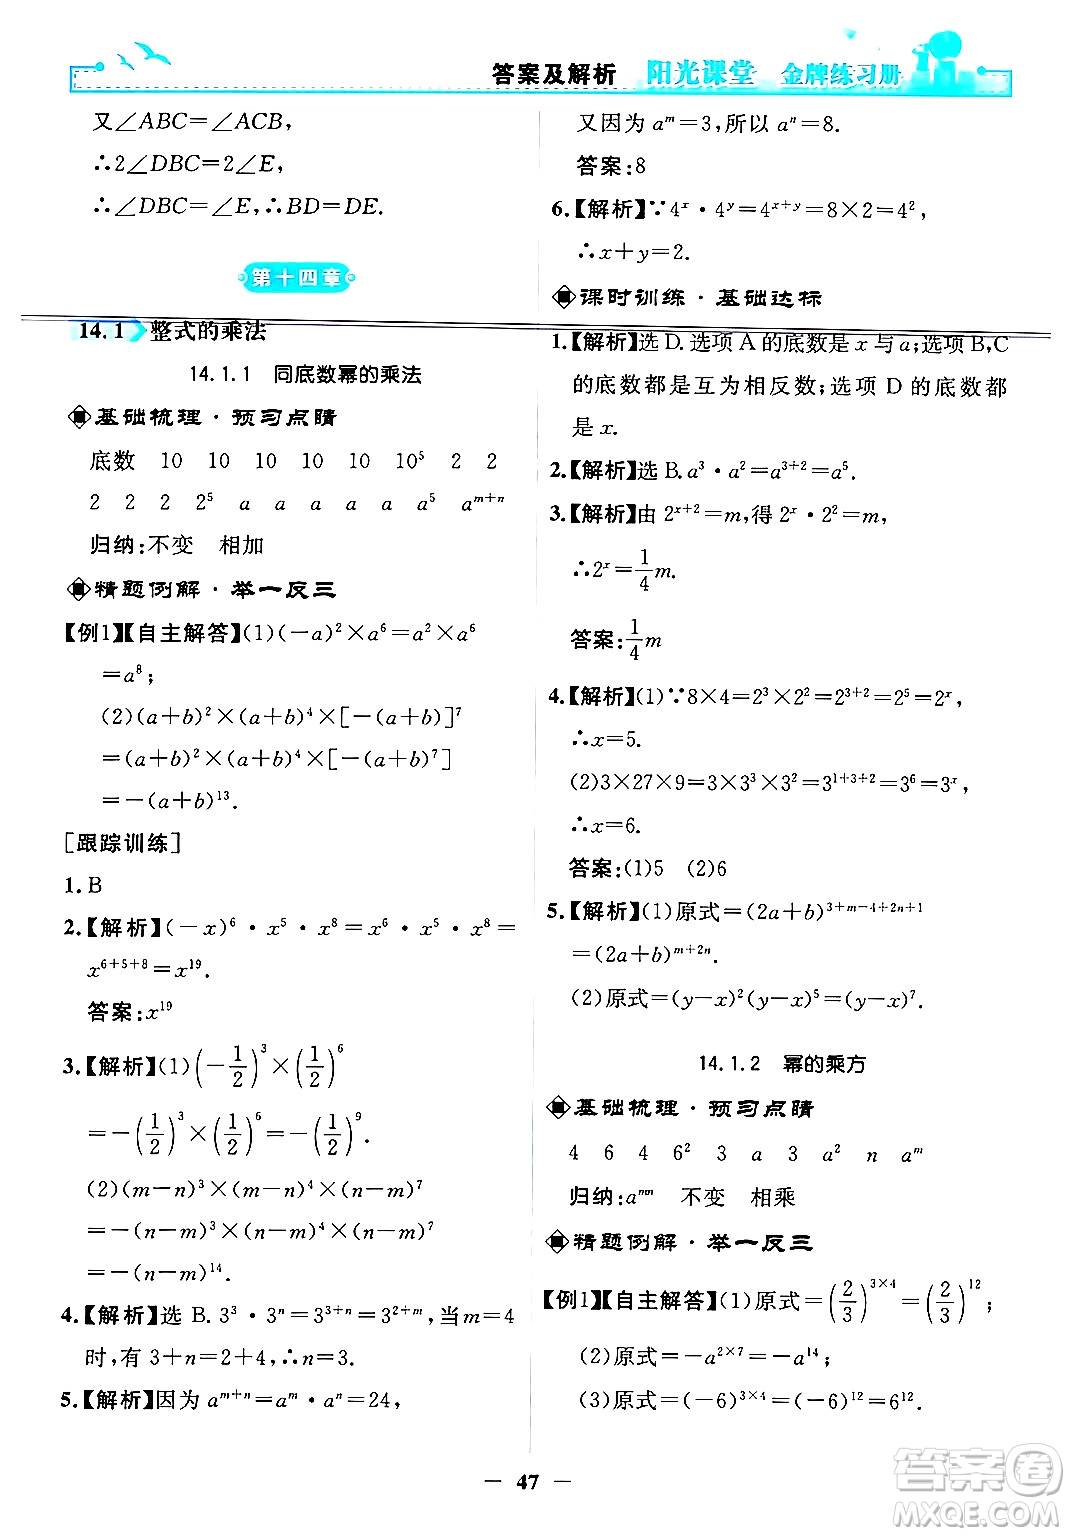 答案及解析 阳光课堂 金牌练习册
又∠ABC=∠ACB,
∴2∠DBC=2∠E,
∴∠DBC=∠E,∴BD=DE.
第十四章
14.1 整式的乘法
14.1.1 同底数幂的乘法
基础梳理·预习点睛
底数 10 10 10 10 10⁵ 2 2
2 2 2 2⁵ a a a a a a⁵ aᵐ⁺ⁿ
归纳:不变 相加
精题例解·举一反三
【例1】【自主解答】(1)(-a)²×a⁶=a²×a⁶
=a⁸;
(2)(a+b)²×(a+b)⁴×[-(a+b)]⁷
=(a+b)²×(a+b)⁴×[-(a+b)⁷]
=-(a+b)¹³.
[跟踪训练]
1.B
2.【解析】(-x)⁶·x⁵·x⁸=x⁶·x⁵·x⁸=
x⁶⁺⁵⁺⁸=x¹⁹.
答案:x¹⁹
3.【解析】(1)(-1/2)³×(1/2)⁶
=-(1/2)³×(1/2)⁶=-(1/2)⁹.
(2)(m-n)³×(n-m)⁴×(n-m)⁷
=-(n-m)³×(n-m)⁴×(n-m)⁷
=-(n-m)¹⁴.
4.【解析】选B.3³·3ⁿ=3³⁺ⁿ=3²⁺ᵐ,当m=4
时,有3+n=2+4,∴n=3.
5.【解析】因为aᵐ⁺ⁿ=aᵐ·aⁿ=24,
又因为aᵐ=3,所以aⁿ=8.
答案:8
6.【解析】∵4ˣ·4ʸ=4ˣ⁺ʸ=8×2=4²,
∴x+y=2.
课时训练·基础达标
1.【解析】选D.选项A的底数是x与a;选项B,C
的底数都是互为相反数;选项D的底数都
是x.
2.【解析】选B.a³·a²=a³⁺²=a⁵.
3.【解析】由2ˣ⁺²=m,得2ˣ·2²=m,
∴2ˣ=1/4m.
答案:1/4m
4.【解析】(1)∵8×4=2³×2²=2³⁺²=2⁵=2ˣ,
∴x=5.
(2)3×27×9=3×3³×3²=3¹⁺³⁺²=3⁶=3ˣ,
∴x=6.
答案:(1)5 (2)6
5.【解析】(1)原式=(2a+b)³⁺ᵐ⁻⁴⁺²ⁿ⁺¹
=(2a+b)ᵐ⁺²ⁿ.
(2)原式=(y-x)²(y-x)⁵=(y-x)⁷.
14.1.2 幂的乘方
基础梳理·预习点睛
4 6 4 6² 3 a 3 a² n aᵐ
归纳:aᵐⁿ 不变 相乘
精题例解·举一反三
【例1】【自主解答】(1)原式=(2/3)³ˣ⁴=(2/3)¹²;
(2)原式=-a²ˣ⁷=-a¹⁴;
(3)原式=(-6)³ˣ⁴=(-6)¹²=6¹².
— 47 —
答案卷
MXQE.COM